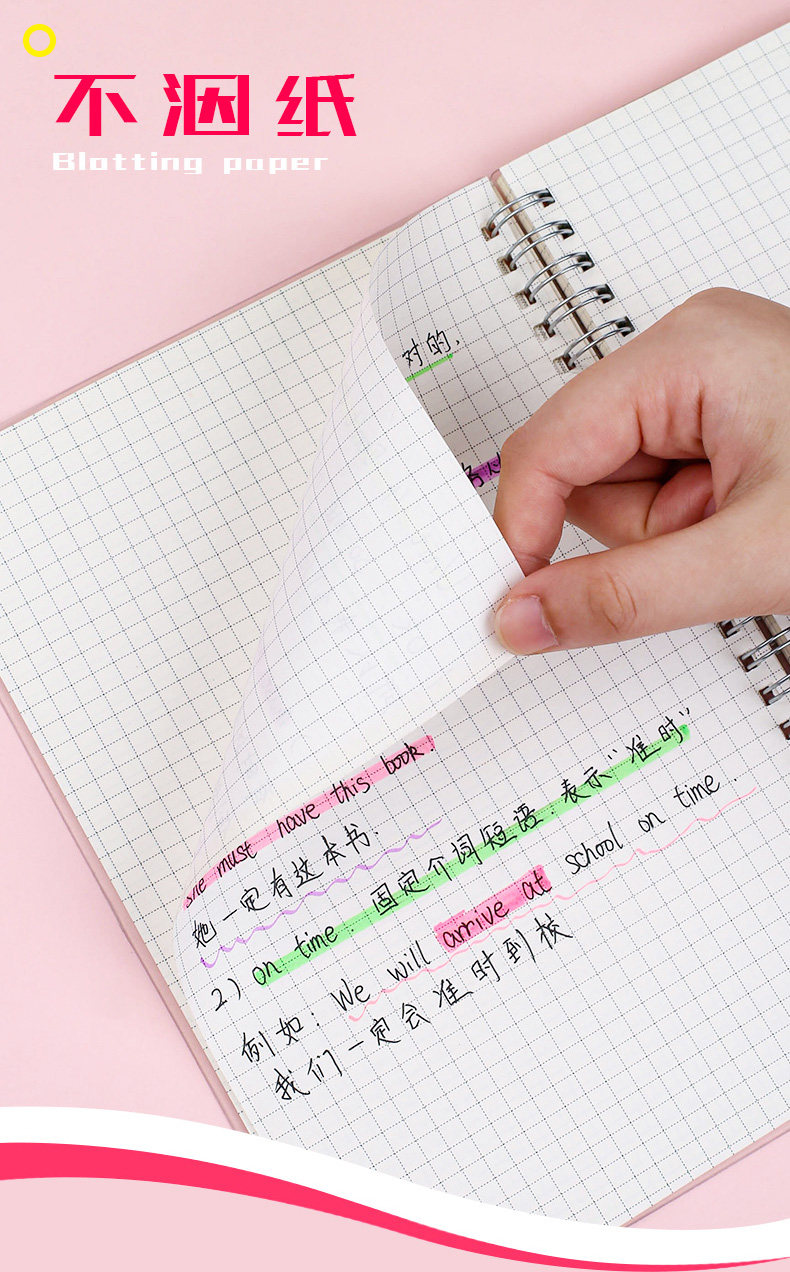 不洇纸
Blotting paper
对的.
she must have this book.
她一定有这本书.
2) on time: 固定介词短语.表示"准时"
例如: We will arrive at school on time.
我们一定会准时到校